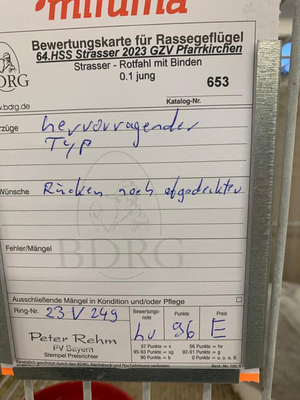 mifuma
Bewertungskarte für Rassegeflügel
64.HSS Strasser 2023 GZV Pfarrkirchen
Strasser - Rotfahl mit Binden
0.1 jung
653
BDRG
w.bdrg.de
Katalog-Nr.
züge
hervorragender
Typ
Wünsche
Rücken noch abgedeckter
Fehler/Mängel
BDRG
Ausschließende Mängel in Kondition und/oder Pflege
Ring-Nr. 23 V 249
Bewertungsnote
Punkte
Preis
hv 96 E
Peter Rehm
PV Bayern
Stempel Preisrichter
97 Punkte = v
96 Punkte = hv
95-93 Punkte = sg
92-91 Punkte = g
90 Punkte = b
0 Punkte = u. o. B.